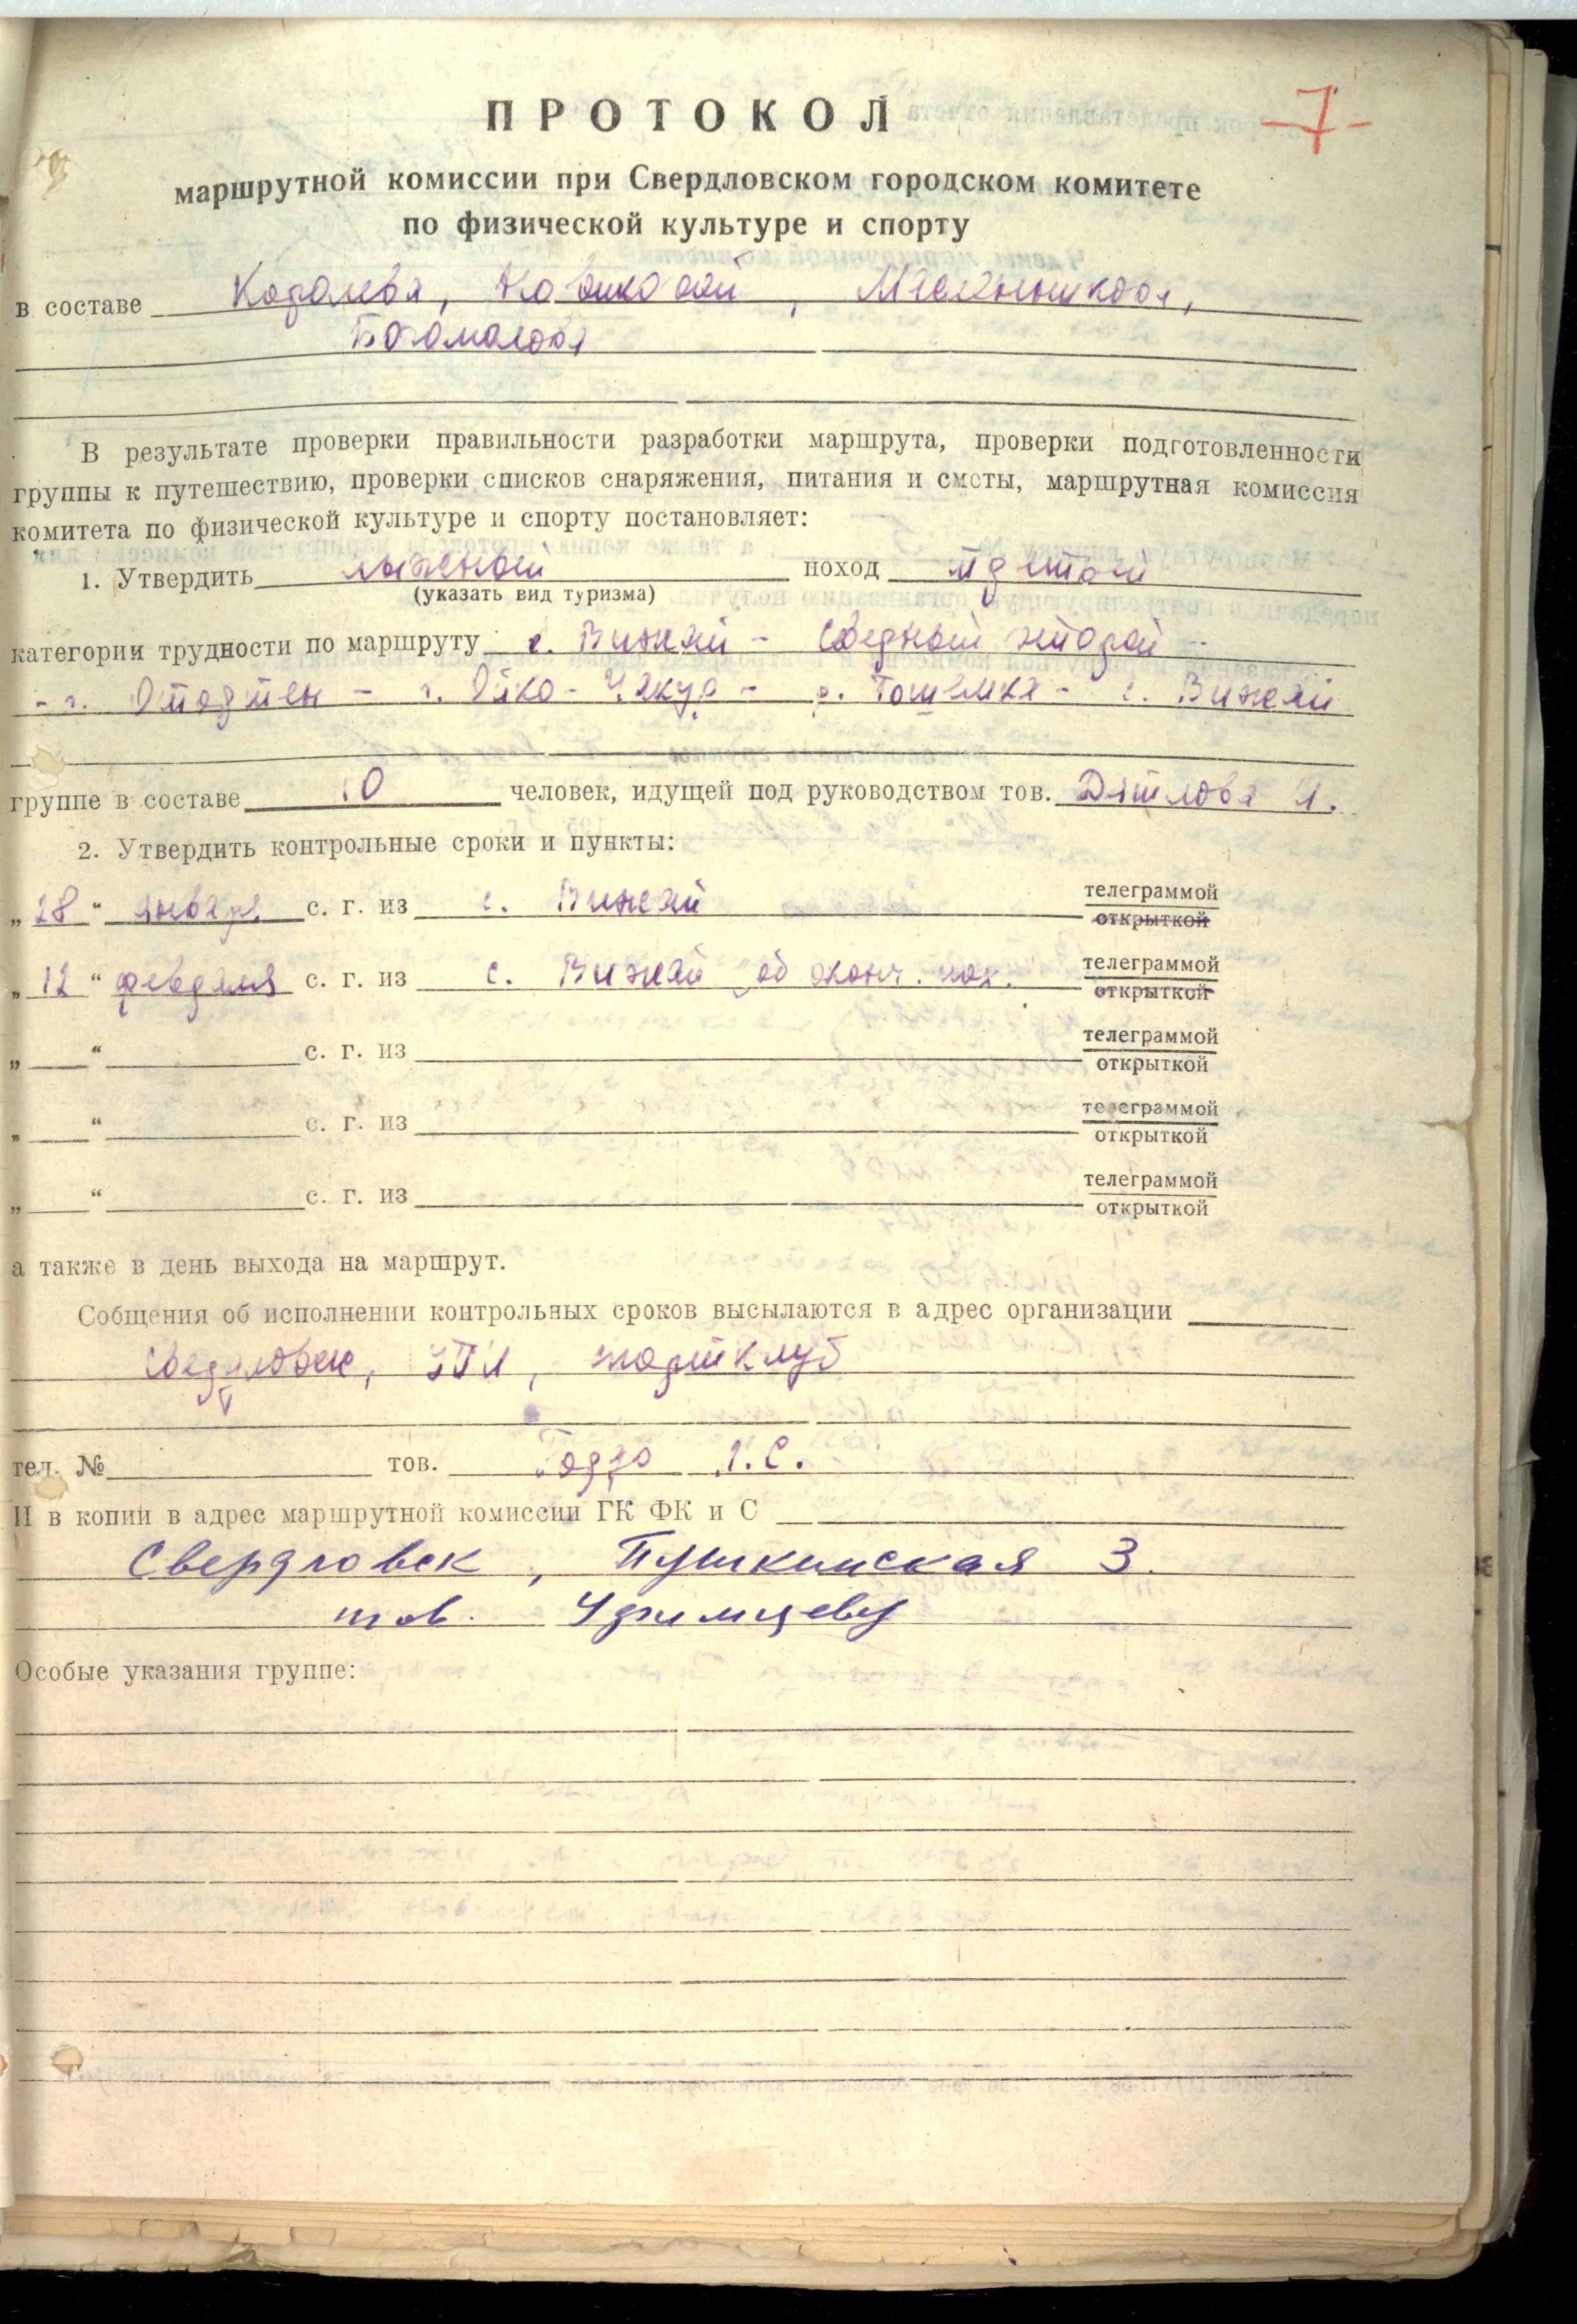 ПРОТОКОЛ
7
маршрутной комиссии при Свердловском городском комитете
по физической культуре и спорту
в составе Королева, Новиковой, Масленникова,
Богомолова
В результате проверки правильности разработки маршрута, проверки подготовленности
группы к путешествию, проверки списков снаряжения, питания и сметы, маршрутная комиссия
комитета по физической культуре и спорту постановляет:
1. Утвердить лыжный поход третьей
(указать вид туризма)
категории трудности по маршруту с. Вижай - второй
- г. Отортен - г. Ойко-Чакур - р. Тошемка - с. Вижай
группе в составе 10 человек, идущей под руководством тов. Дятлова И.
2. Утвердить контрольные сроки и пункты:
„28“ января с. г. из с. Вижай телеграммой
открыткой
„12“ февраля с. г. из с. Вижай об оконч. пох. телеграммой
открыткой
„ “ с. г. из телеграммой
открыткой
„ “ с. г. из телеграммой
открыткой
„ “ с. г. из телеграммой
открыткой
а также в день выхода на маршрут.
Собщения об исполнении контрольных сроков высылаются в адрес организации
Свердловск, УПИ, спортклуб
тел. № тов. Гордо Л.С.
И в копии в адрес маршрутной комиссии ГК ФК и С
Свердловск, Пушкинская 3.
тов. Уфимцеву
Особые указания группе: